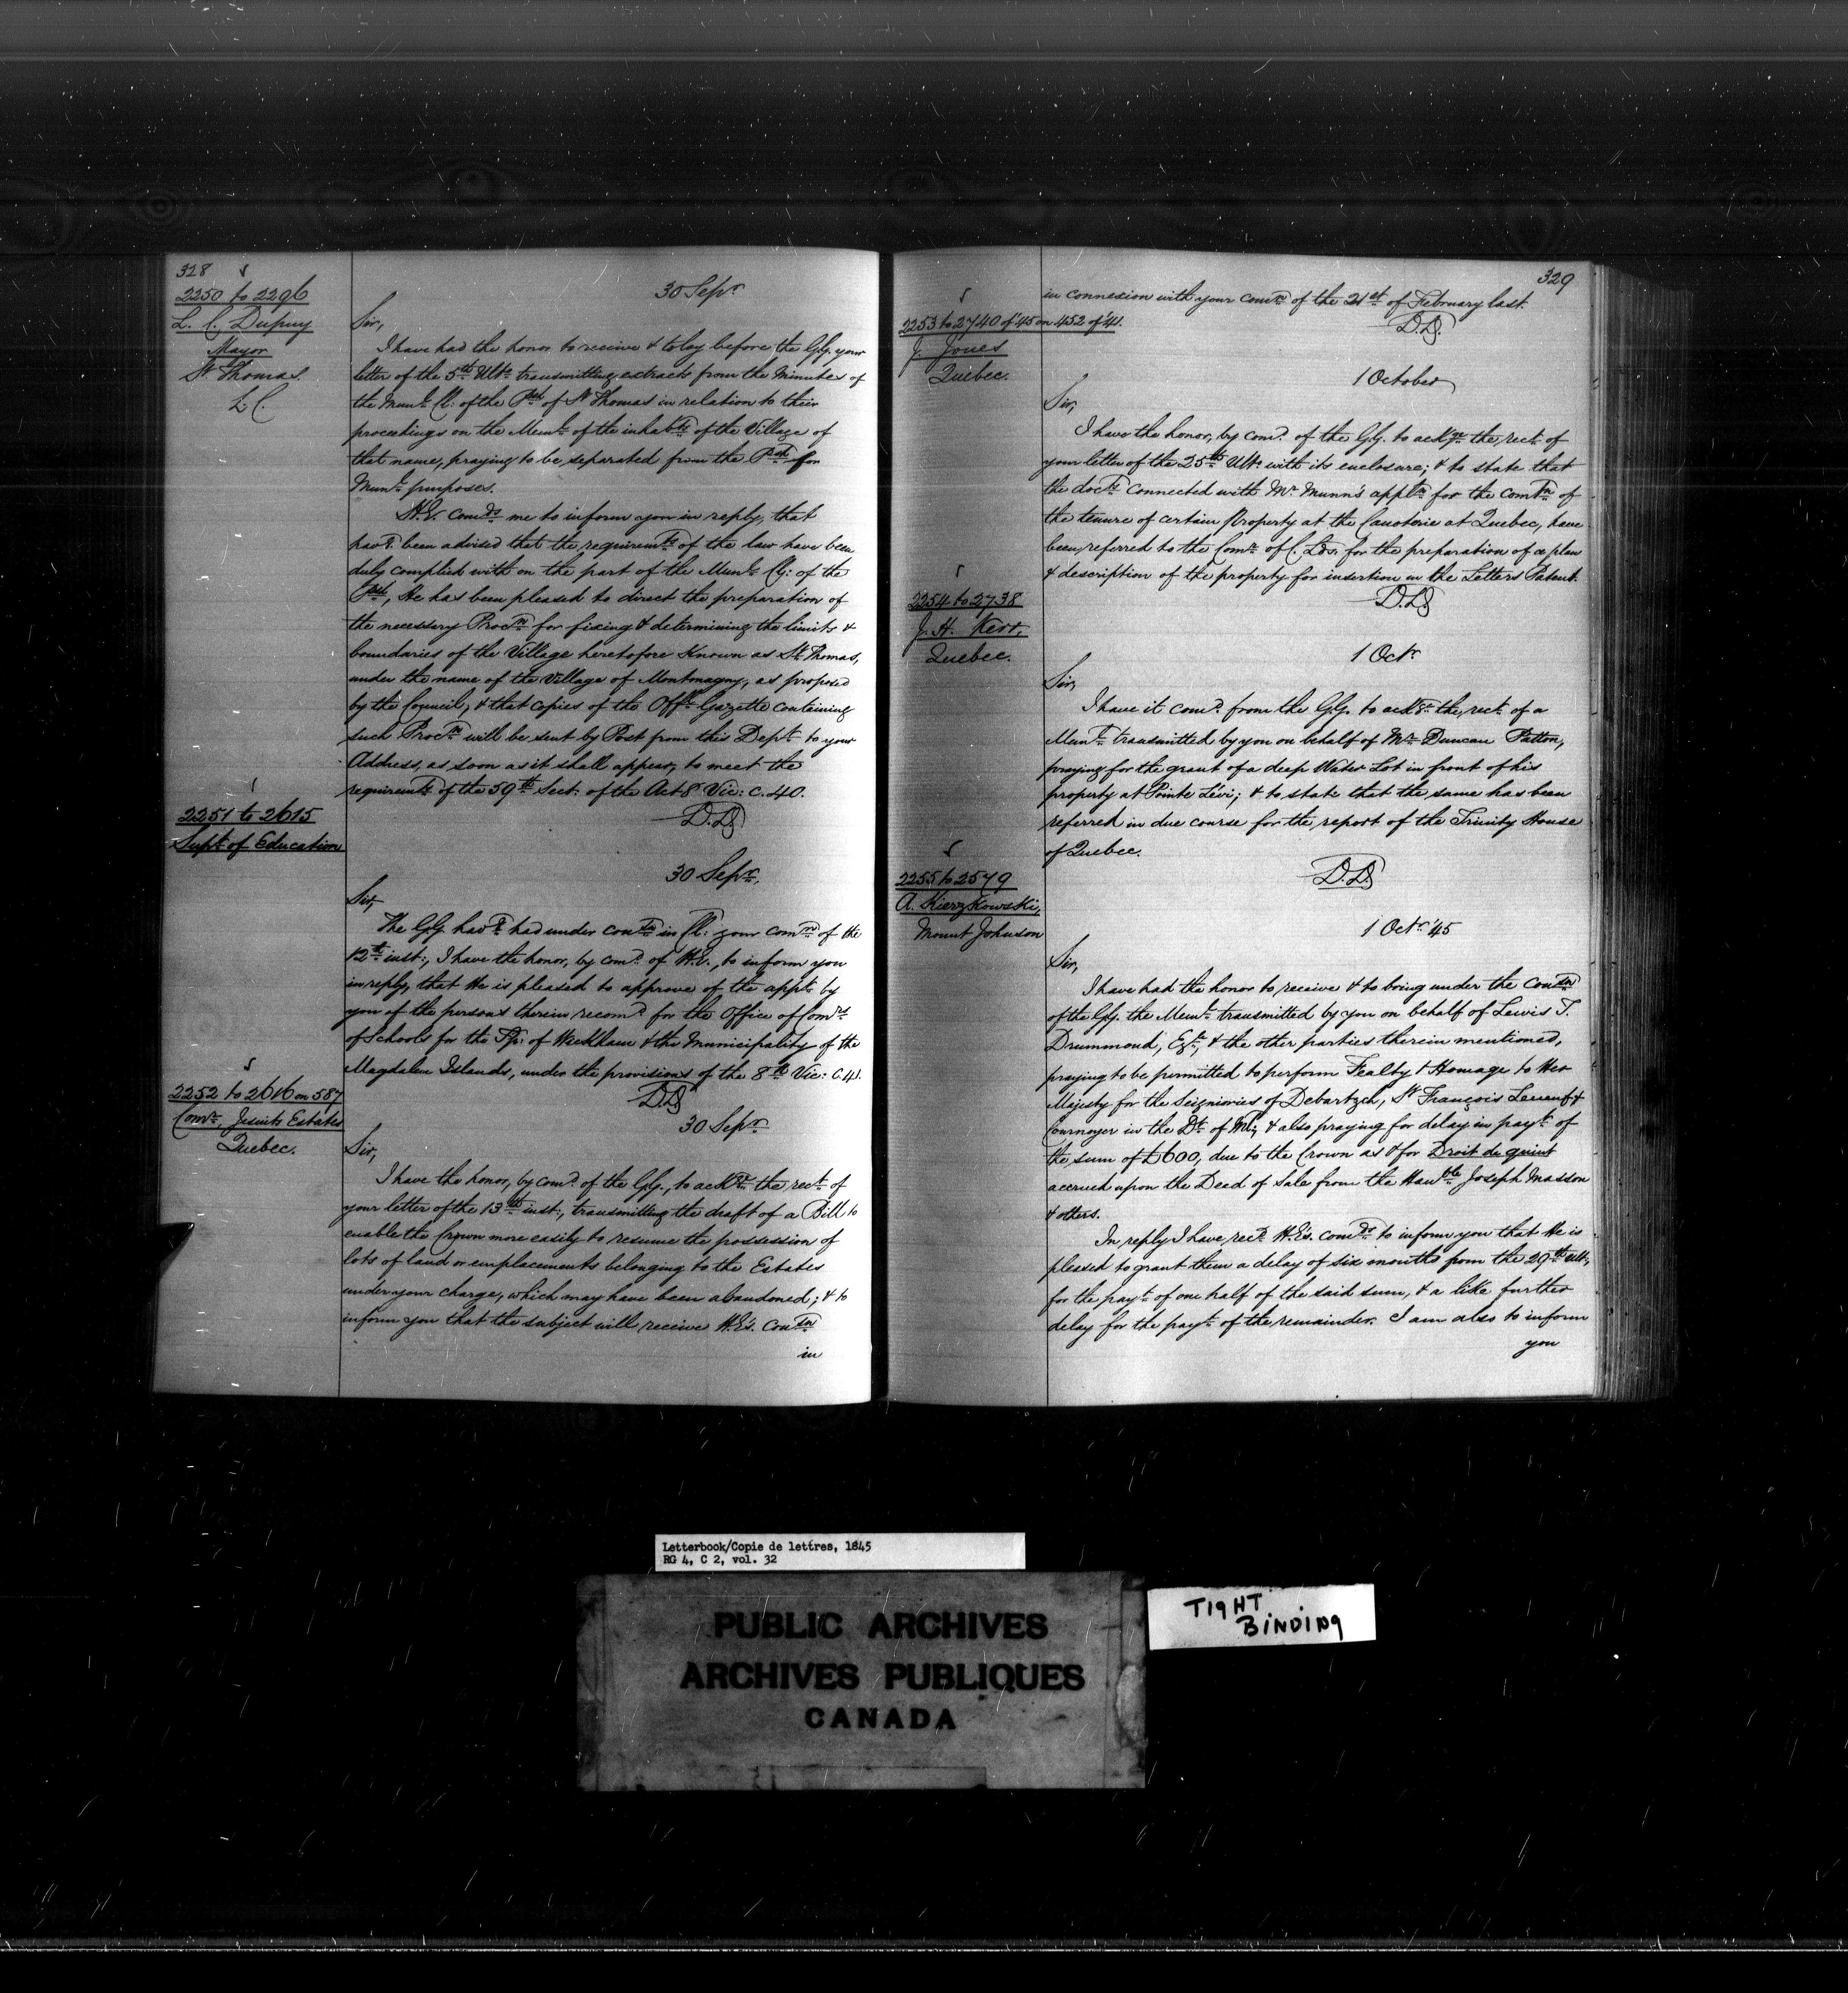 328
2250 to 2296
L. C. Dupuy
Mayor
St Thomas
L C.
30 Sepr
Sir,
I have had the honor to receive & to lay before the G.G. your
letter of the 5th Ulto transmitting extracts from the Minutes of
the Munl Cl: of the Psh of St Thomas in relation to their
proceedings on the Meml of the inhabts of the Village of
that name, praying to be separated from the Psh for
Munl purposes.
H.E. comds me to inform you in reply, that
havg been advised that the requiremts of the law have been
duly complied with on the part of the Munl Cl: of the
Psh, He has been pleased to direct the preparation of
the necessary Procn for fixing & determining the limits &
boundaries of the Village heretofore Known as St Thomas,
under the name of the Village of Montmagny, as proposed
by the Council, & that copies of the Offl Gazette containing
such Procn will be sent by Post from this Dept to your
Address, as soon as it shall appear, to meet the
requiremts of the 59th Sect: of the Act 8 Vic: c. 40.
D.D.
2251 to 2615
Supt of Education
30 Sepr
Sir,
The G.G. havg had under conson in Cl: your comn of the
12th inst:, I have the honor, by comd of H.E., to inform you
in reply, that He is pleased to approve of the appt by
you of the persons therein recomd for the Office of Comrs
of Schools for the Tp: of Wickham & the Municipality of the
Magdalen Islands, under the provisions of the 8th Vic: c. 41.
D.D.
2252 to 2616 on 587
Comr Jesuits Estates
Quebec.
30 Sepr
Sir,
I have the honor, by comd of the G.G., to ackge the rect of
your letter of the 13th inst:, transmitting the draft of a Bill to
enable the Crown more easily to resume the possession of
lots of land or emplacements belonging to the Estates
under your charge, which may have been abandoned; & to
inform you that the subject will receive H.E's. conson
in
329
in connexion with your comn of the 21st of February last.
D.D.
2253 to 2740 of '45 on 452 of '41.
J. Jones
Quebec.
1 October
Sir,
I have the honor, by comd of the G.G. to ackge the rect of
your letter of the 25th Ulto with its enclosure; & to state that
the docts connected with Mr Munn's appln for the comtn of
the tenure of certain Property at the Canoterie at Quebec, have
been referred to the Comr of C. Lds. for the preparation of a plan
& description of the property for insertion in the Letters Patent.
D.D.
2254 to 2738
J. H. Kerr,
Quebec.
1 Octr
Sir,
I have it comd from the G.G. to ackge the rect of a
Meml transmitted by you on behalf of Mr Duncan Patton,
praying for the grant of a deep Water Lot in front of his
property at Pointe Lévi; & to state that the same has been
referred in due course for the report of the Trinity House
of Quebec.
D.D.
2255 to 2579
A. Kierzkowski,
Mount Johnson
1 Octr '45
Sir,
I have had the honor to receive & to bring under the conson
of the G.G. the Meml transmitted by you on behalf of Lewis T.
Drummond, Eqre, & the other parties therein mentioned,
praying to be permitted to perform Fealty & Homage to Her
Majesty for the Seigniories of Debartzch, St François Leneuf &
Cournoyer in the Dt of Ml; & also praying for delay in payt of
the sum of £600, due to the Crown as & for Droit de quint
accrued upon the Dead of Sale from the Honble Joseph Masson
& others.
In reply I have recd H.E's. comds to inform you that He is
pleased to grant them a delay of six months from the 29th ult:,
for the payt of one half of the said sum, & a like further
delay for the payt of the remainder. I am also to inform
you
Letterbook/Copie de lettres, 1845
RG 4, C 2, vol. 32
PUBLIC ARCHIVES
ARCHIVES PUBLIQUES
CANADA
TIGHT
BINDING